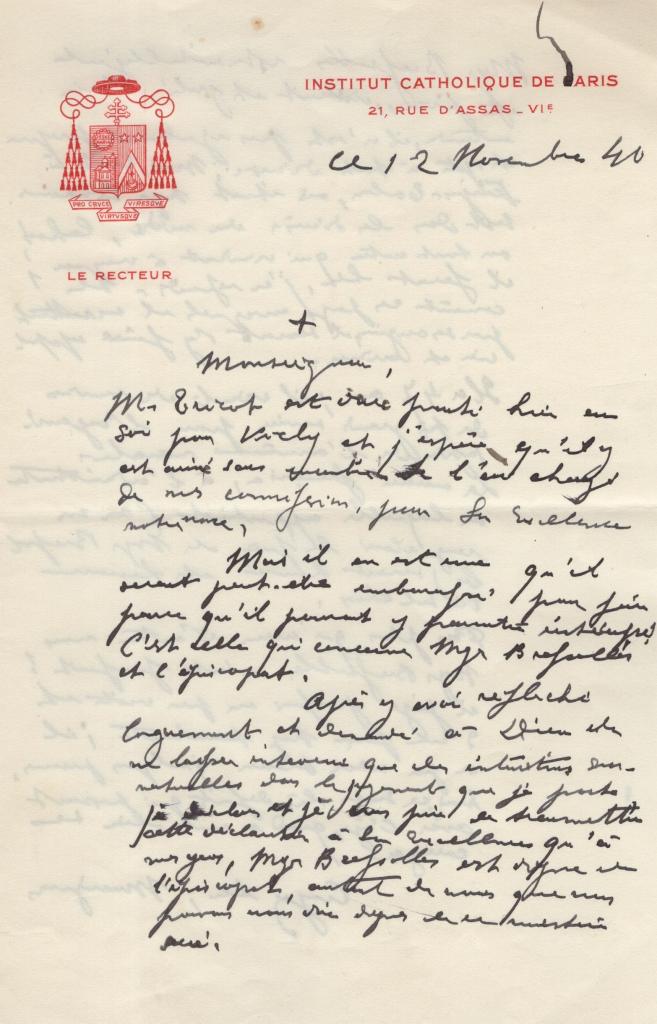 INSTITUT CATHOLIQUE DE PARIS
21, RUE D'ASSAS _ VIE
ce 12 Novembre 40
PRO CRVCE VIRESQVE
VIRTVSQVE
LE RECTEUR
+
Monseigneur,
Mr Tricot est donc parti hier au
soir pour Vichy et j'espère qu'il y
est arrivé sans encombre de l'en charge
de mes commissions, pour Son Excellence
le nonce.
Mais il en est une qu'il
serait peut-être embarrassé pour faire
parce qu'il pourrait y paraître intéressé
C'est celle qui concerne Mgr Bressolles
et l'épiscopat.
Après y avoir réfléchi
longuement et demandé à Dieu de
ne laisser intervenir que des intuitions sur-
naturelles dans le jugement que je porte
je déclare et je vous prie de transmettre
cette déclaration à Son Excellence qu'à
mes yeux, Mgr Bressolles est digne de
l'épiscopat, autant de nous que nous
pouvons nous dire dignes de ce ministère
sacré.